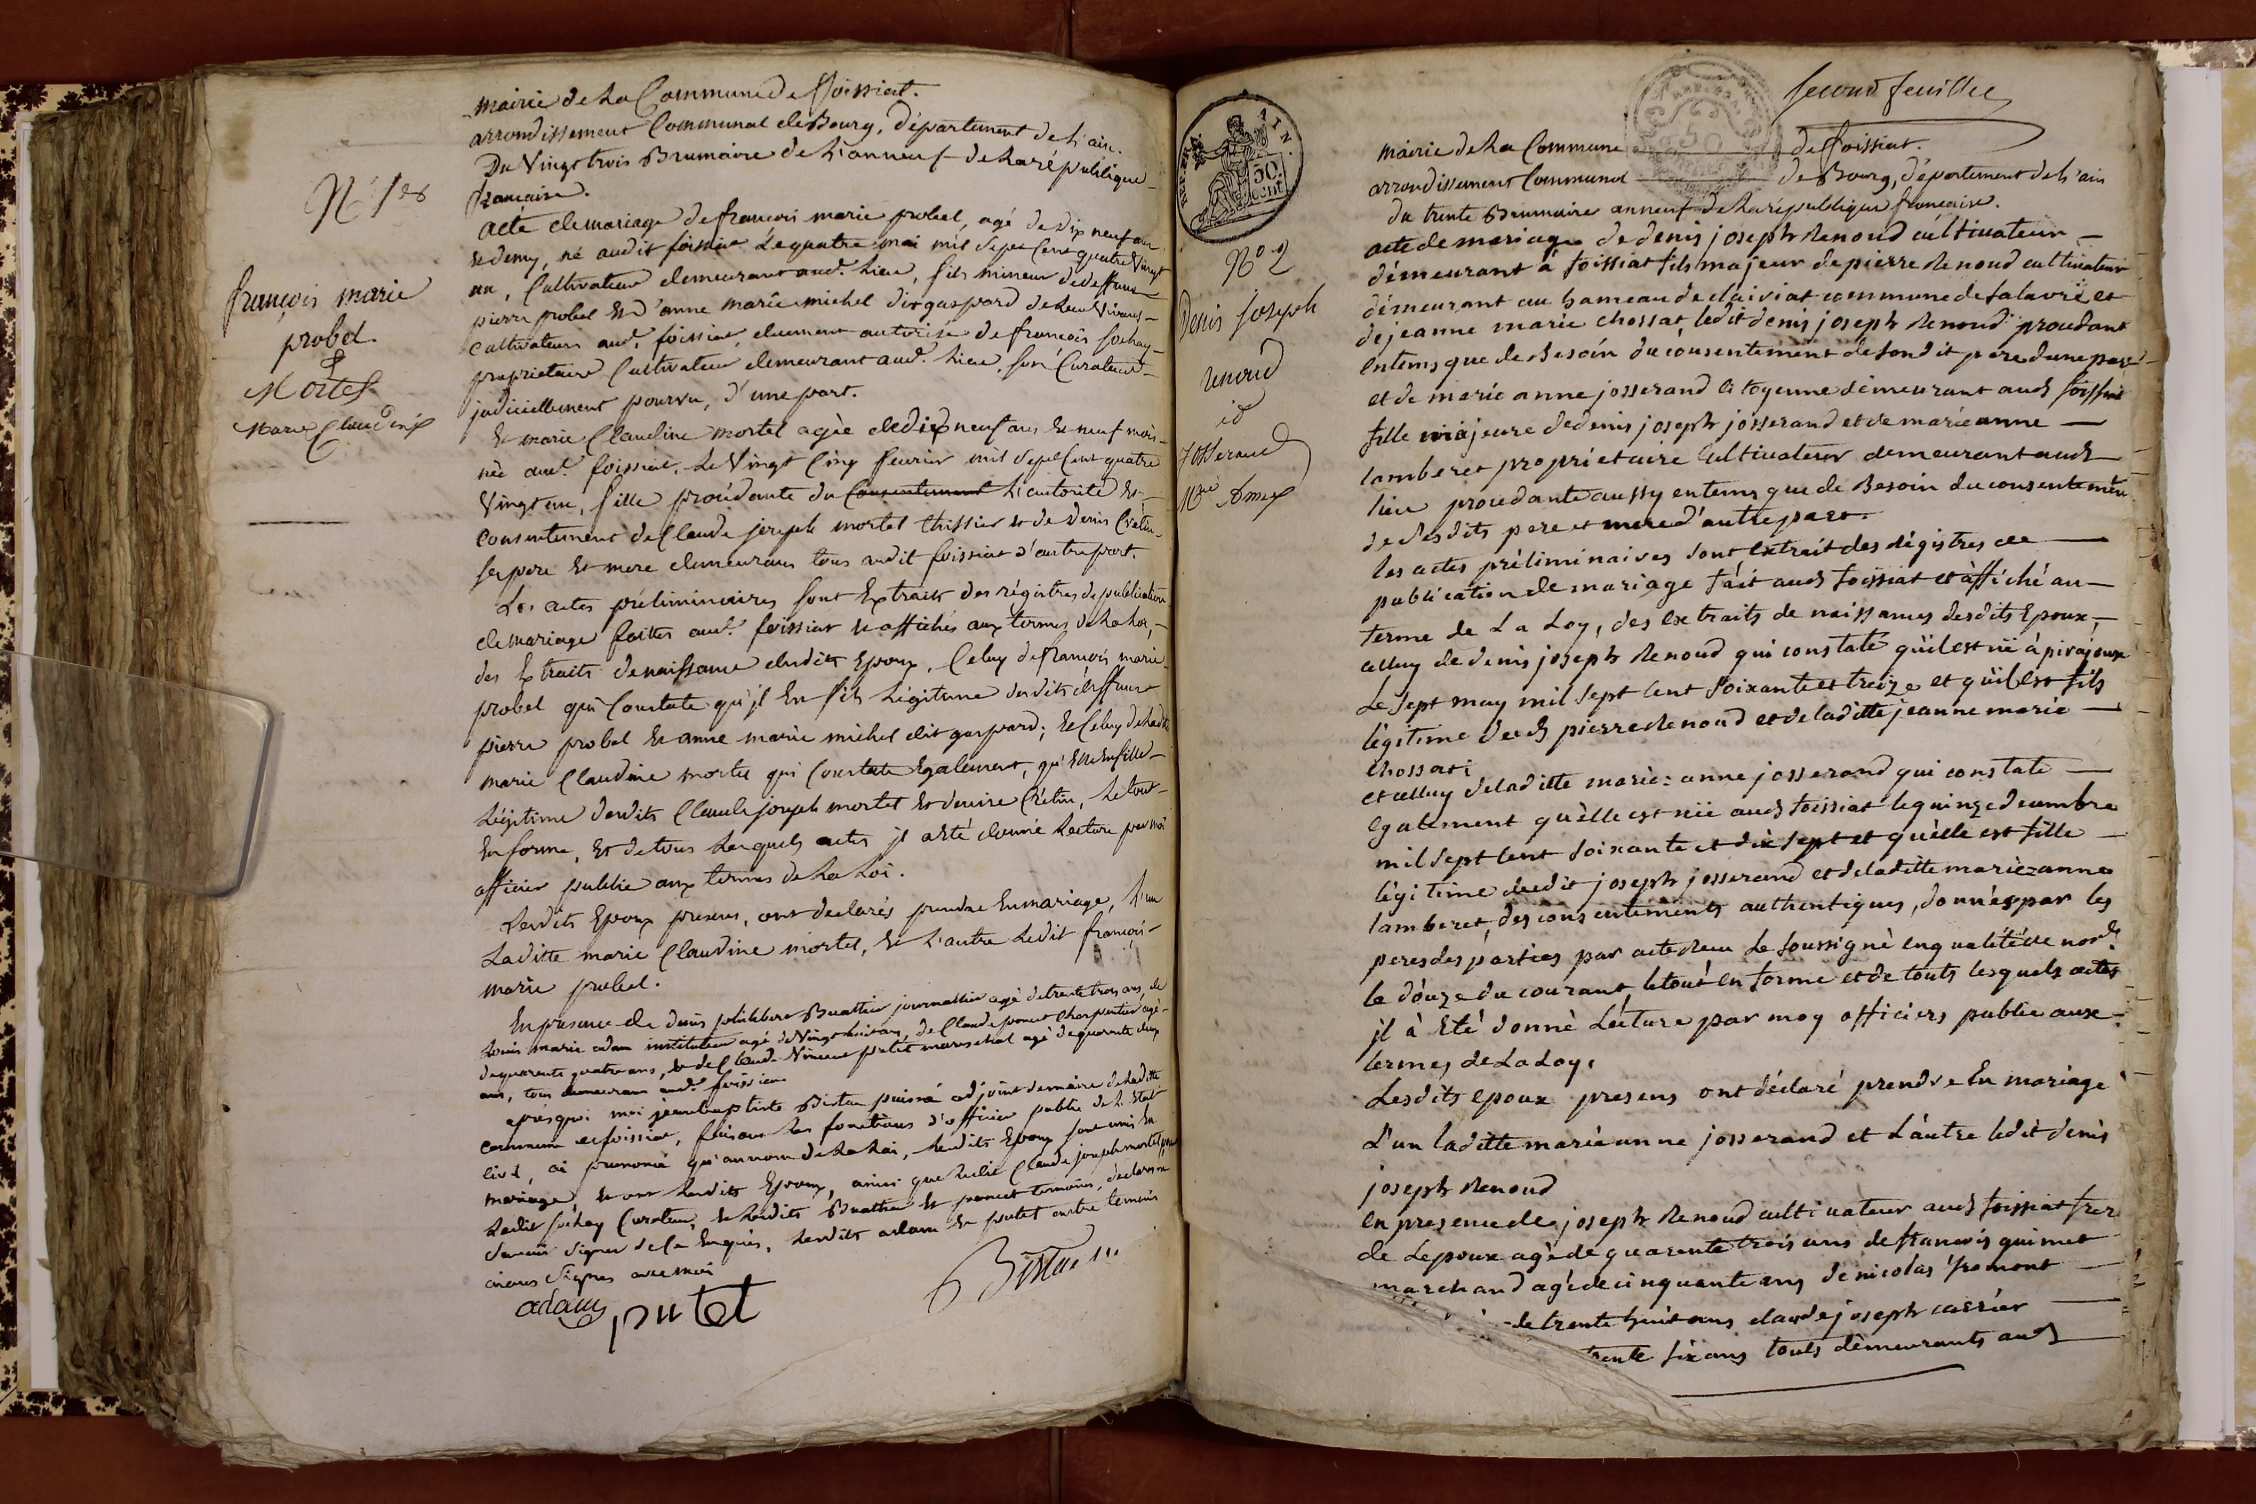 mairie de La Commune de foissiat.
arrondissement Communal de Bourg, département de L'ain.
Du Vingt trois Brumaire de L'an neuf de La république
française.
N.º 1er
acte de mariage de francois marie probel, agé de dix neuf ans
et demy, né audit foissiat le quatre mai mil sept cent quatre Vingt
un, Cultivateur demeurant aud. Lieu, fils mineur de deffunt
pierre probel et d'anne marie michel dit gaspard de Leur Vivant
cultivateurs aud. foissiat, duement autorisé de francois sochay
propriétaire Cultivateur demeurant aud. Lieu, son Curateur
judiciellement pourvu, d'une part.
françois marie
probel
&
Mortel
Marie Claudine
Et marie Claudine mortel agée de dix neuf ans et neuf mois
née aud. foissiat, Le Vingt Cinq février mil sept cent quatre
Vingt un, fille procédante du Consentement L'autorité et
consentement de Claude joseph mortel thissier et de denise Crétin
ses pere et mere demeurans tous audit foissiat d'autre part.
Les actes préliminaires sont Extraits des régistres de publication
de mariage faites aud. foissiat et affichés aux termes de La Loi,
des Extraits de naissance desdits Epoux, Celuy de francois marie
probel qui Constate qu'il Est fils Légitime desdits deffunt
pierre probel et anne marie michel dit gaspard; et Celuy de Ladite
marie Claudine mortel qui Constate Egalement, qu'Elle Est fille
Légitime desdits Claude joseph mortel et denise Crétin, Le tout
En forme, Et de tous Lesquels actes il a été donné Lecture par moi
officier public aux termes de La Loi.
Lesdits Epoux presens, ont declarés prendre En mariage, L'un
Laditte marie Claudine mortel, et L'autre Ledit francois
marie probel.
En presence de denis philibert Buathier journallier agé de trente trois ans, de
Louis marie adam instituteur agé de Vingt huit ans, de Claude poncet Charpentier agé
de quarante quatre ans, et de Claude Vincent putet mareschal agé de quarante deux
ans, tous demeurans aud. foissiat
apres quoi moi jean baptiste Bistau puisné adjoint de maire de Laditte
commune de foissiat, faisant Les fonctions d'officier public de L'Etat
civil, ai prononcé qu'au nom de La Loi, Lesdits Epoux sont unis En
mariage, et ont Lesdits Epoux, ainsi que Ledit Claude joseph mortel
Ledit sochay Curateur, et Lesdits Buathier et poncet temoins, déclaré ne
savoir signer de Ce Enquis, Lesdits adam et putet autre temoins
signes avec moi
adam putet
Bistau
second feuillet
AIN.
50
CENT
mairie de La Commune de foissiat.
arrondissement Communal de Bourg, département de L'ain
du trente Brumaire an neuf de La république francaise.
Nº 2
Denis Joseph
renoud
et
Josserand
Mie Anne
acte de mariage de denis joseph Renoud cultivateur
démeurant à foissiat fils majeur de pierre Renoud cultivateur
démeurant au hameau de claiviat commune de salavre et
de jeanne marie chossat, ledit denis joseph Renoud procedant
entems que de Besoin du consentement de son dit père d'une part
et de marie anne josserand citoyenne démeurant aud foissiat
fille majeure de denis joseph josserand et de marie anne
lamberet propriétaire Cultivateur demeurant aud
lieu procedante aussy entems que de Besoin du consentement
de sesdits pere et mere d'autre part.
les actes préliminaires sont Extrait des régistres de
publication de mariage fait aud foissiat et affiché au
terme de La Loy, des extraits de naissances desdits Epoux,
celluy de denis joseph Renoud qui constate qu'il est né à pirajoux
Le sept may mil sept cent soixante et treize et qu'il est fils
légitime dud pierre Renoud et de laditte jeanne marie
chossat;
et celluy de laditte marie anne josserand qui constate
egalement qu'elle est née aud foissiat le quinze decembre
mil sept cent soixante et dix sept et qu'elle est fille
légitime dudit joseph josserand et de laditte marie anne
lamberet, des consentements authentiques, donnés par les
peres des parties par acte reçu Le soussigné en qualité de nore
le douze du courant, le tout en forme et de touts lesquels actes
jl à été donné Lecture par moy officiers public aux
termes de La Loy.
Lesdits époux presens ont déclaré prendre En mariage
L'un laditte marie anne josserand et L'autre ledit denis
joseph Renoud
en presence de joseph Renoud cultivateur aud foissiat frere
de Lepoux agé de quarente trois ans de francois guimet
marchand agé de cinquante ans de nicolas fromont
de trente huit ans claude joseph carrier
trente six ans touts démeurants aud